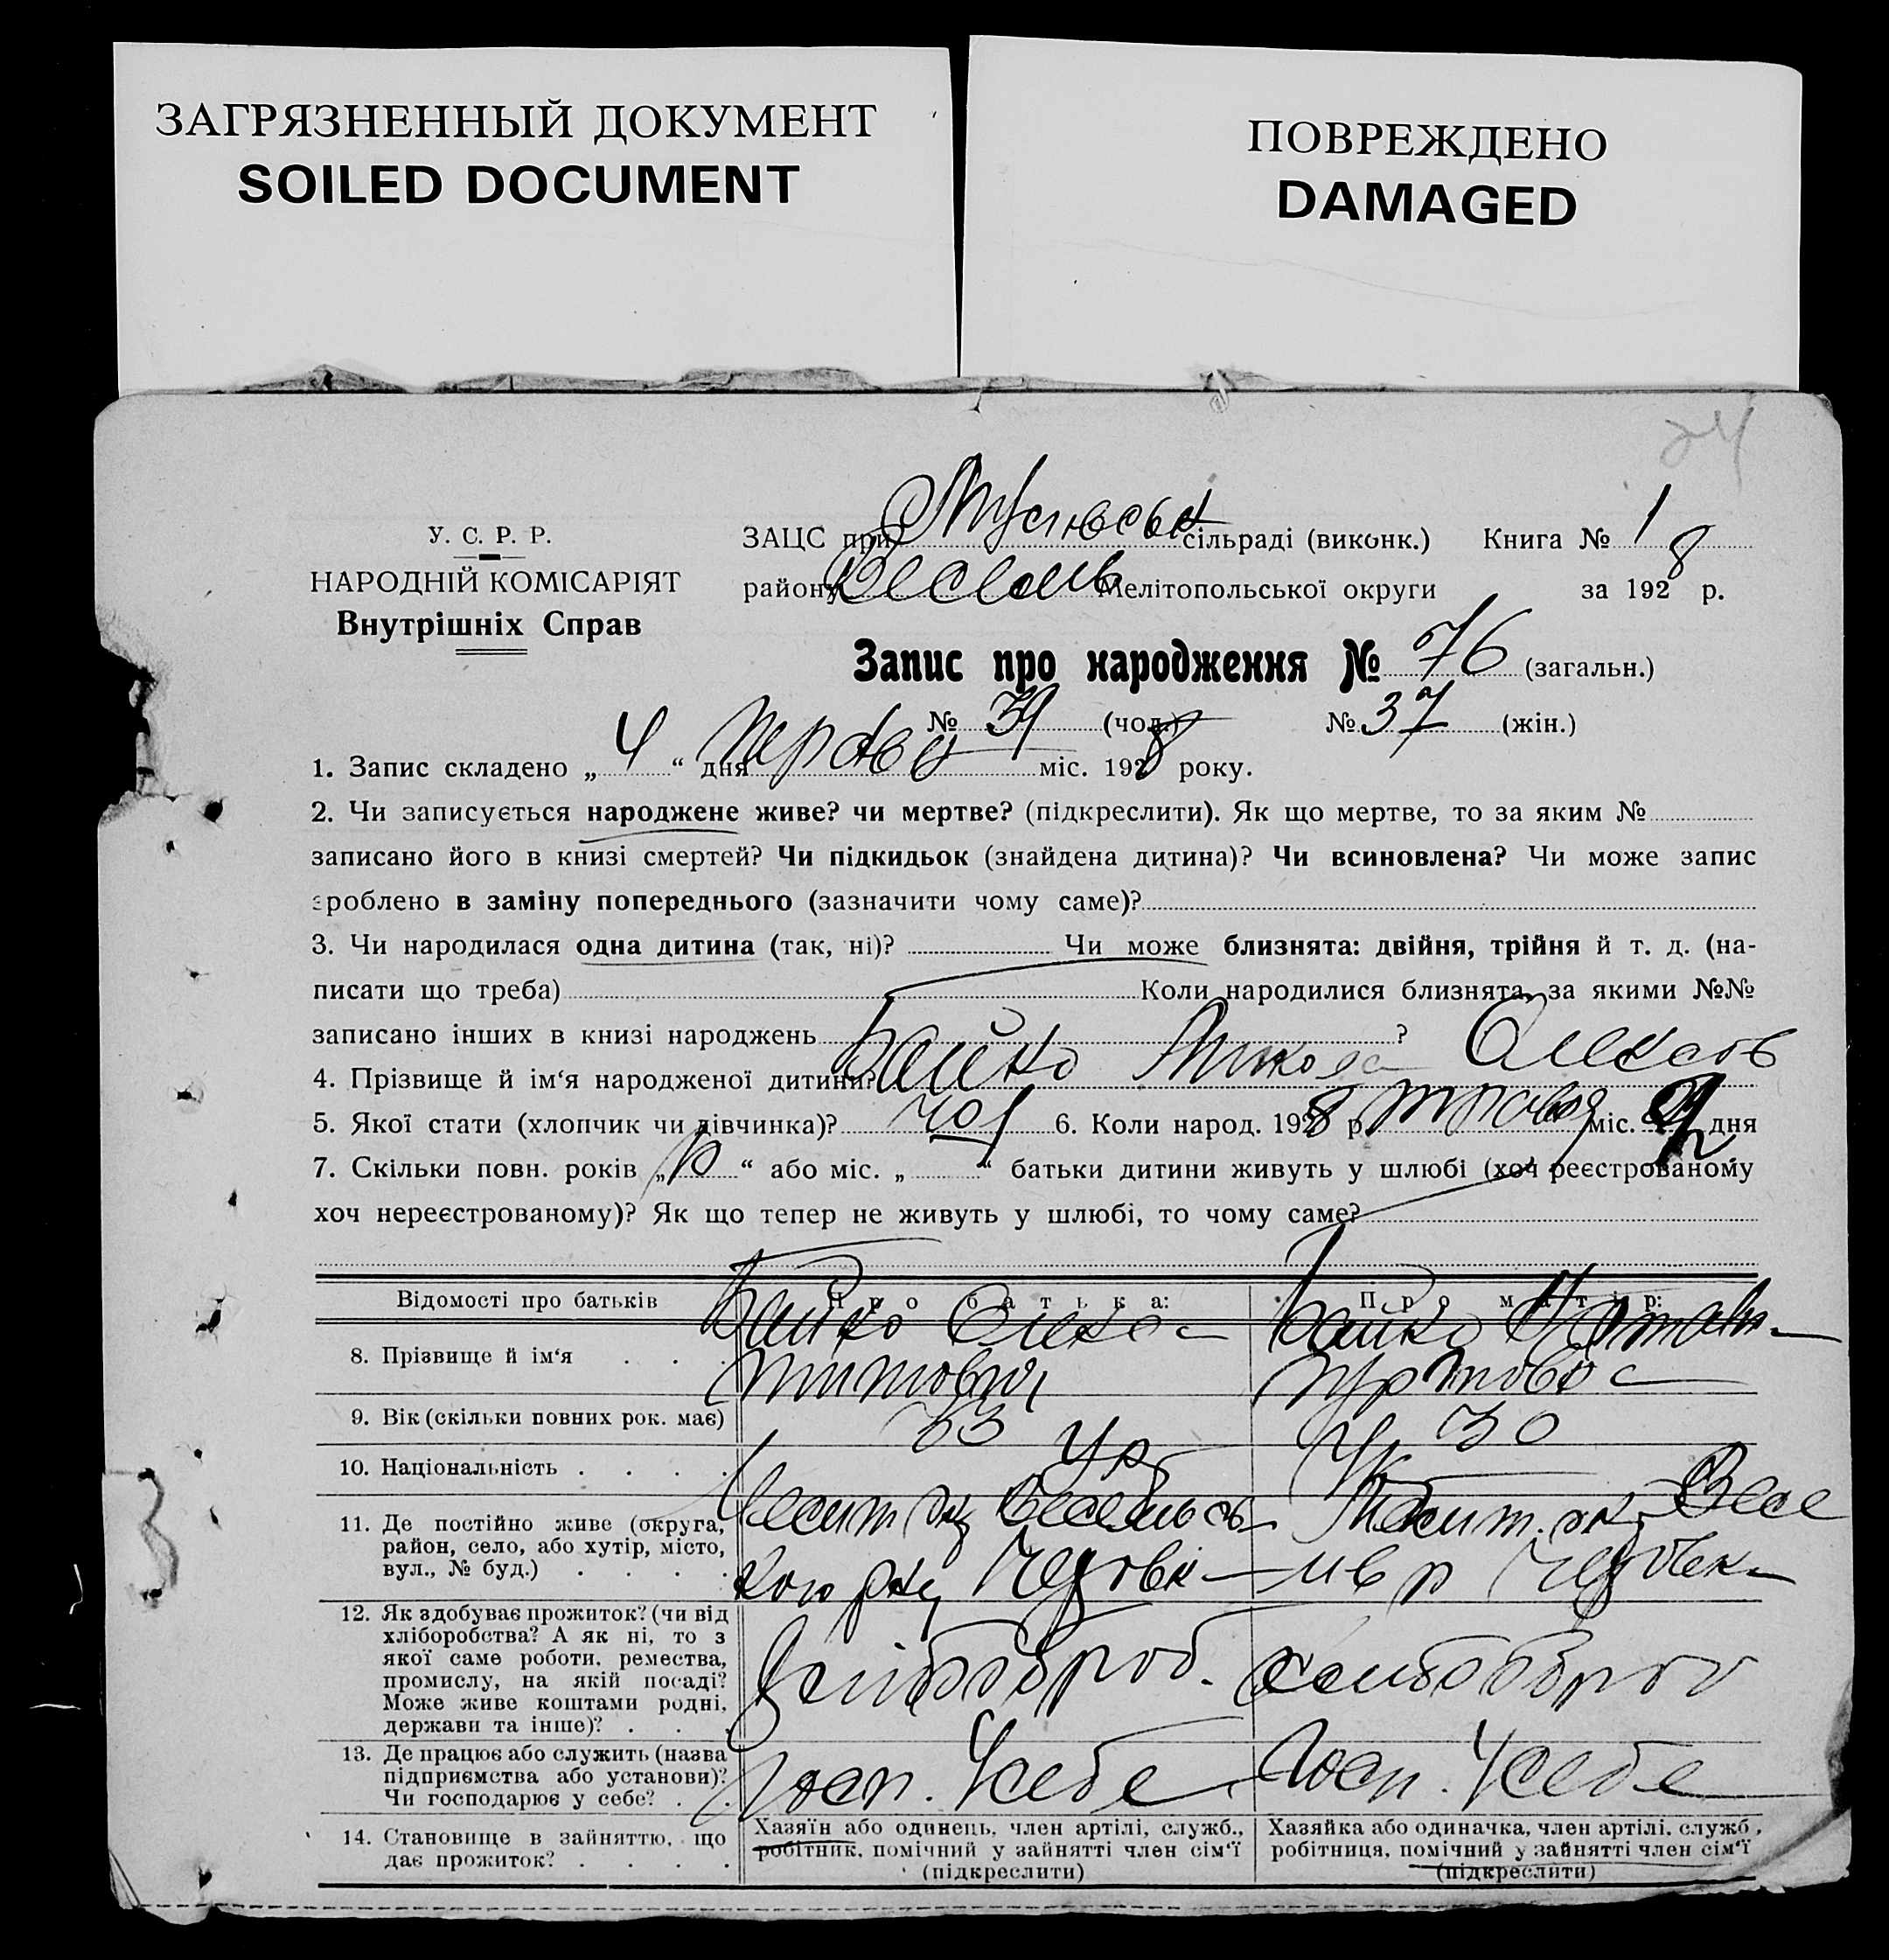 ЗАГРЯЗНЕННЫЙ ДОКУМЕНТ
SOILED DOCUMENT
ПОВРЕЖДЕНО
DAMAGED
24
У. С. Р. Р.
НАРОДНІЙ КОМІСАРІЯТ
Внутрішніх Справ
ЗАЦС при сільраді (виконк.) Книга № 1
району Мелітопольської округи за 1928 р.
Запис про народження № 76 (загальн.)
№ 39 (чол.) № 37 (жін.)
1. Запис складено „ 4 “ дня міс. 1928 року.
2. Чи записується народжене живе? чи мертве? (підкреслити). Як що мертве, то за яким №
записано його в книзі смертей? Чи підкидьок (знайдена дитина)? Чи всиновлена? Чи може запис
зроблено в заміну попереднього (зазначити чому саме)?
3. Чи народилася одна дитина (так, ні)? Чи може близнята: двійня, трійня й т. д. (на-
писати що треба) Коли народилися близнята, за якими №№
записано інших в книзі народжень ?
4. Прізвище й ім‘я народженої дитини? Байко Микола
5. Якої стати (хлопчик чи дівчинка)? чол 6. Коли народ. 1928 р. травня міс. 2 дня
7. Скільки повн. років „ 10 “ або міс. „ “ батьки дитини живуть у шлюбі (хоч реєстрованому
хоч нереєстрованому)? Як що тепер не живуть у шлюбі, то чому саме?
Відомості про батьків Про батька: Про матір:
8. Прізвище й ім‘я Байко Байко
9. Вік (скільки повних рок. має) 33 30
10. Національність Укр Ук
11. Де постійно живе (округа,
район, село, або хутір, місто,
вул., № буд.)
12. Як здобуває прожиток? (чи від
хліборобства? А як ні, то з
якої саме роботи, ремества,
промислу, на якій посаді?
Може живе коштами родні,
держави та інше)?
13. Де працює або служить (назва
підприємства або установи)?
Чи господарює у себе?
Госп. У себе Госп. У себе
14. Становище в зайняттю, що
дає прожиток?
Хазяїн або одинець, член артілі, служб.,
робітник, помічний у зайнятті член сім‘ї
(підкреслити)
Хазяйка або одиначка, член артілі, служб,
робітниця, помічний у зайнятті член сім‘ї
(підкреслити)